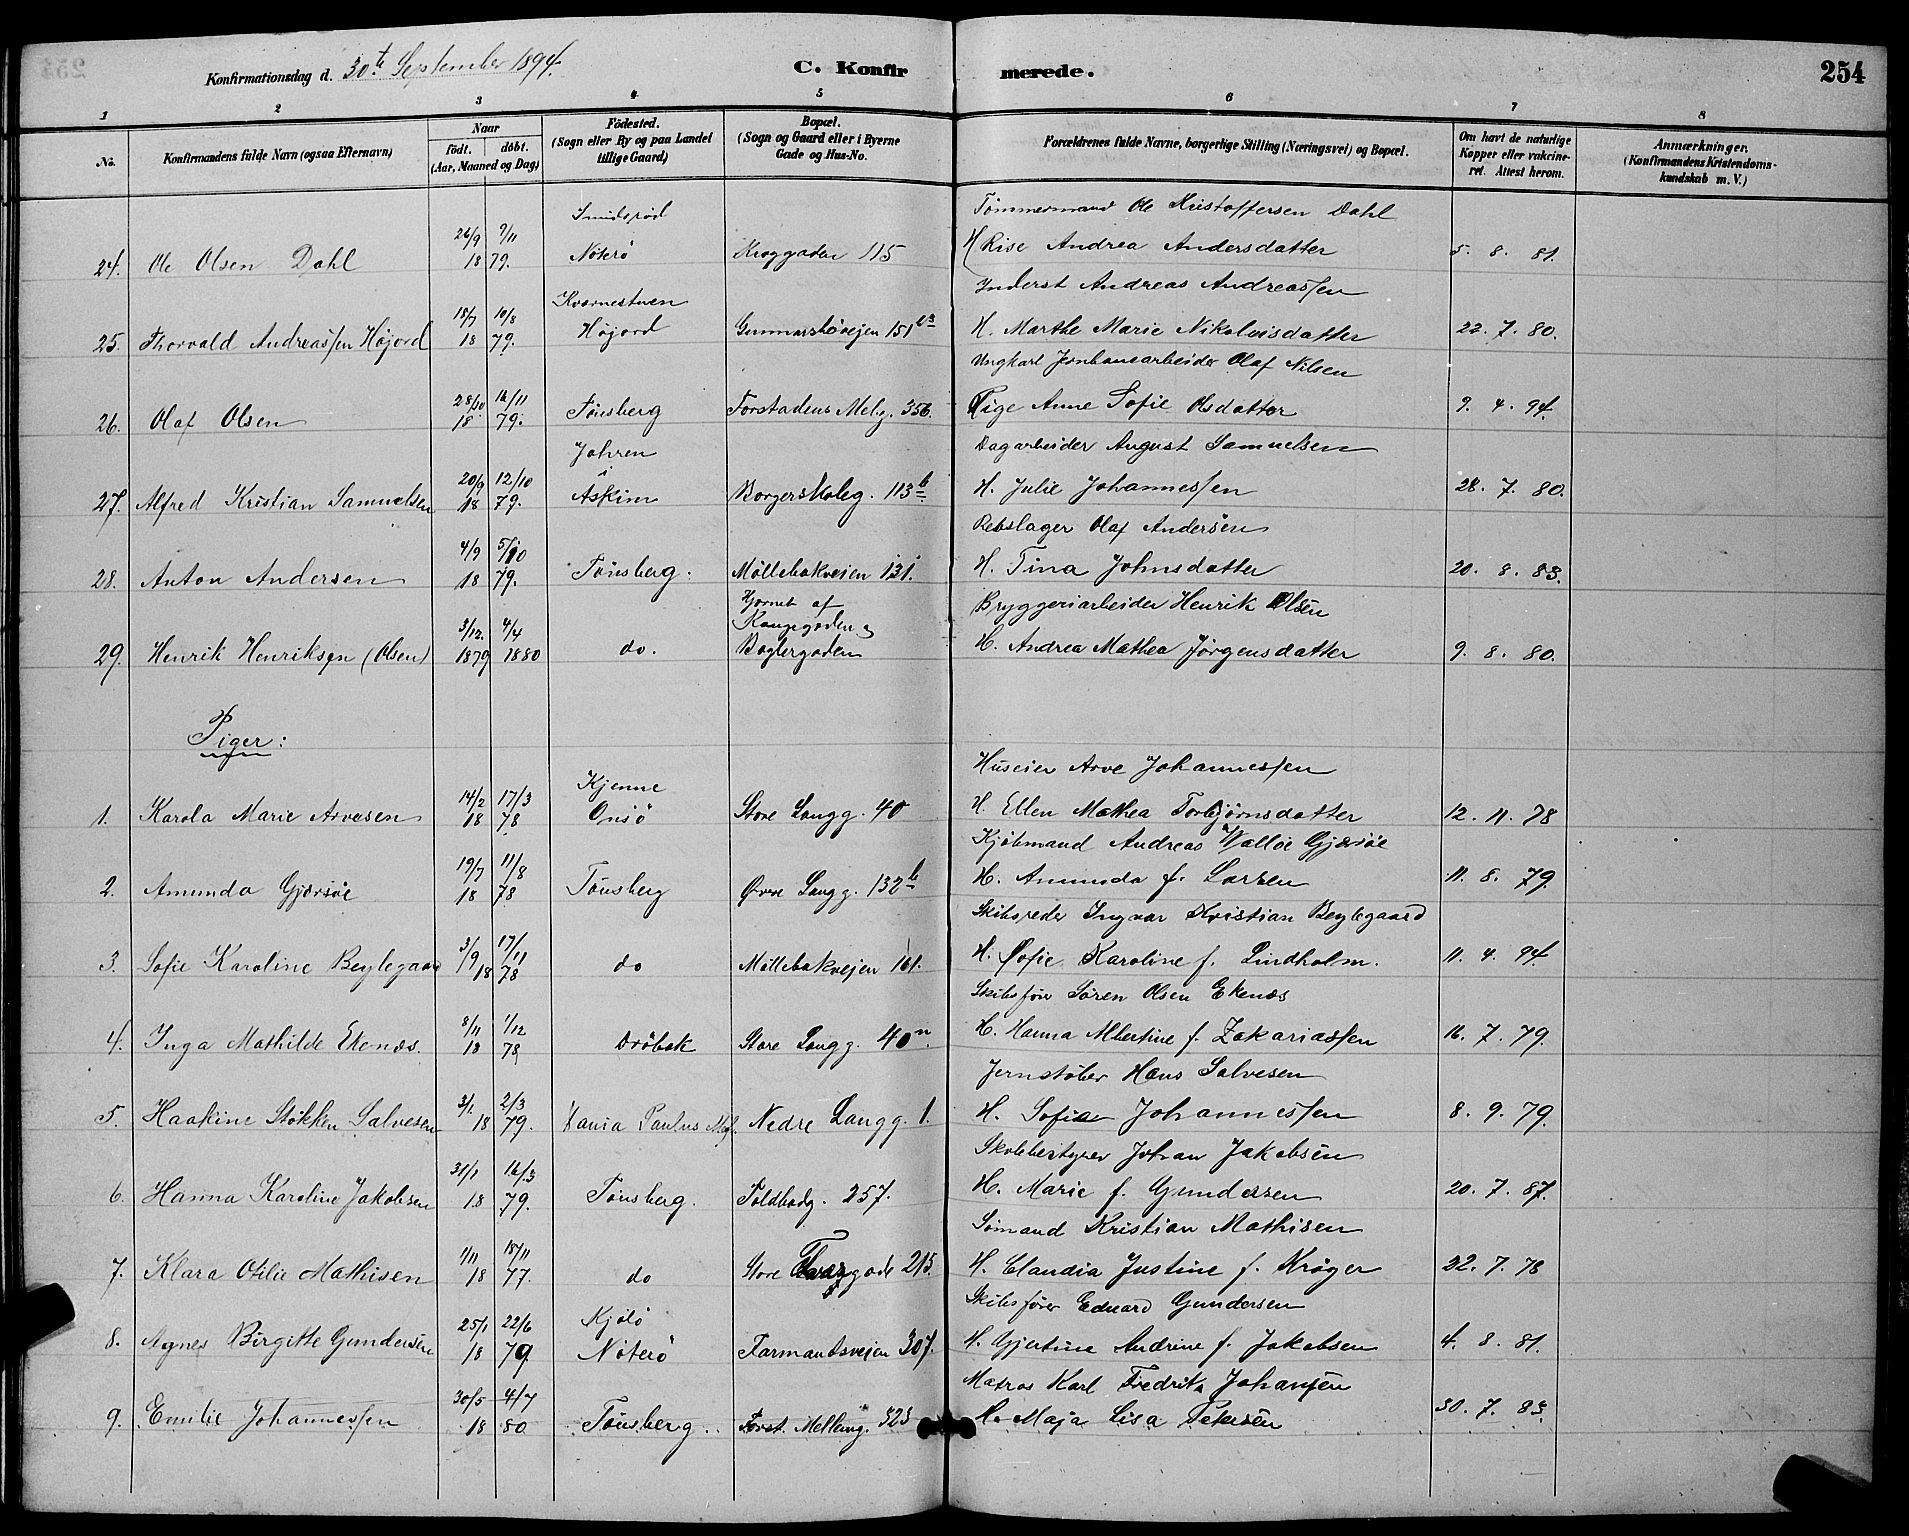 Konfirmationsdag d. 30te September 1894. C. Konfirmerede. 254
1 2 3 4 5 6 7 8
No. Konfirmandens fulde Navn (ogsaa Efternavn) Naar født. døbt. (Aar, Maaned og Dag) Födested. (Sogn eller By og paa Landet tillige Gaard) Bopæl. (Sogn og Gaard eller i Byerne Gade og Hus-No. Forældrenes fulde Navne, borgerlige Stilling (Næringsvei) og Bopæl. Om havt de naturlige Kopper eller vakcineret. Attest herom. Anmærkninger. (Konfirmandens Kristendomskundskab m. V.)
Smidsrød Tømmermand Ole Kristoffersen Dahl
24. Ole Olsen Dahl 26/9 18 9/11 79. Nøterø 115 H. Rise Andrea Andersdatter 5. 8. 81.
Kværnestuen Inderst Andreas Andreassen
25. Thorvald Andreassen Højord 18/7 18 10/8 79. Højord Gunnarsbøveien 151 H. Marthe Marie Nikolaisdatter 22. 7. 80.
Ungkarl Jernbanearbeider Olaf Nilsen
26. Olaf Olsen 28/10 18 16/11 79. Tønsberg Forstadens Melg. 356. Pige Anne Sofie Olsdatter 9. 4. 94.
Johren Dagarbeider August Samuelsen
27. Alfred Kristian Samuelsen 20/9 18 12/10 79. i Askim Borgerskoleg. 113 b H. Julie Johannessen 28. 7. 80.
Rebslager Olaf Andersen
28. Anton Andersen 4/9 18 5/10 79. Tønsberg. Møllebakveien 131. H. Tina Johnsdatter 20. 8. 83.
Hjørnet af Kongegaden & Bryggeriarbeider Henrik Olsen
29. Henrik Henriksen (Olsen) 3/12. 1879 4/4 1880 do. Baglergaden H. Andrea Mathea Jørgensdatter 9. 8. 80.
Piger:
Kjenne Huseier Arve Johannessen
1. Karola Marie Arvesen 14/2 18 17/3 78 Onsø Store Langg. 40 H. Ellen Mathea Torbjørnsdatter 12. 11. 78
Kjøbmand Andreas Walløe Gjersøe
2. Amunda Gjersøe 19/7 18 11/8 78 Tønsberg Øvre Langg. 132 b H. Amunda f. Larsen 11. 8. 79.
Skibsreder Ingvar Kristian Beylegaard
3. Sofie Karoline Beylegaard 3/9 18 17/11 78 do Møllebakveien 161. H. Sofie Karoline f. Lindholm. 11. 4. 94.
Skibsfører Søren Olsen Ekenæs
4. Inga Mathilde Ekenæs. 8/11 18 1/12 78 Drøbak Store Langg. 40 n. H. Hanna Albertine f. Zakariassen 16. 7. 79.
Jernstøber Hans Salvesen
5. Haakine Støkken Salvesen 18 2/3 79. Xania Paulus Mgh. Nedre Langg. 1. H. Sofie Johannessen 8. 9. 79.
Skolebestyrer Johan Jakobsen
6. Hanna Karoline Jakobsen 31/1 18 16/3 79. Tønsberg. Toldbodg. 257. H. Marie f. Gundersen 20. 7. 87.
Sømand Kristian Mathisen
7. Klara Otilie Mathisen 1/11 18 18/11 77. do Store Færgegade 215. H. Claudia Justine f. Krøger 22. 7. 78
Kjøłø Skibsfører Eduard Gundersen
8. Agnes Birgitte Gundersen 25/1 18 22/6 79 Nøterø Farmandsveien 307. H. Gjertine Andrine f. Jakobsen 4. 8. 81.
Matros Karl Fredrik Johansen
9. Emilie Johannessen 30/5 18 4/7 80 Tønsberg. Forst. Mellemg. 323 H. Maja Lisa Petersen 30. 7. 83.